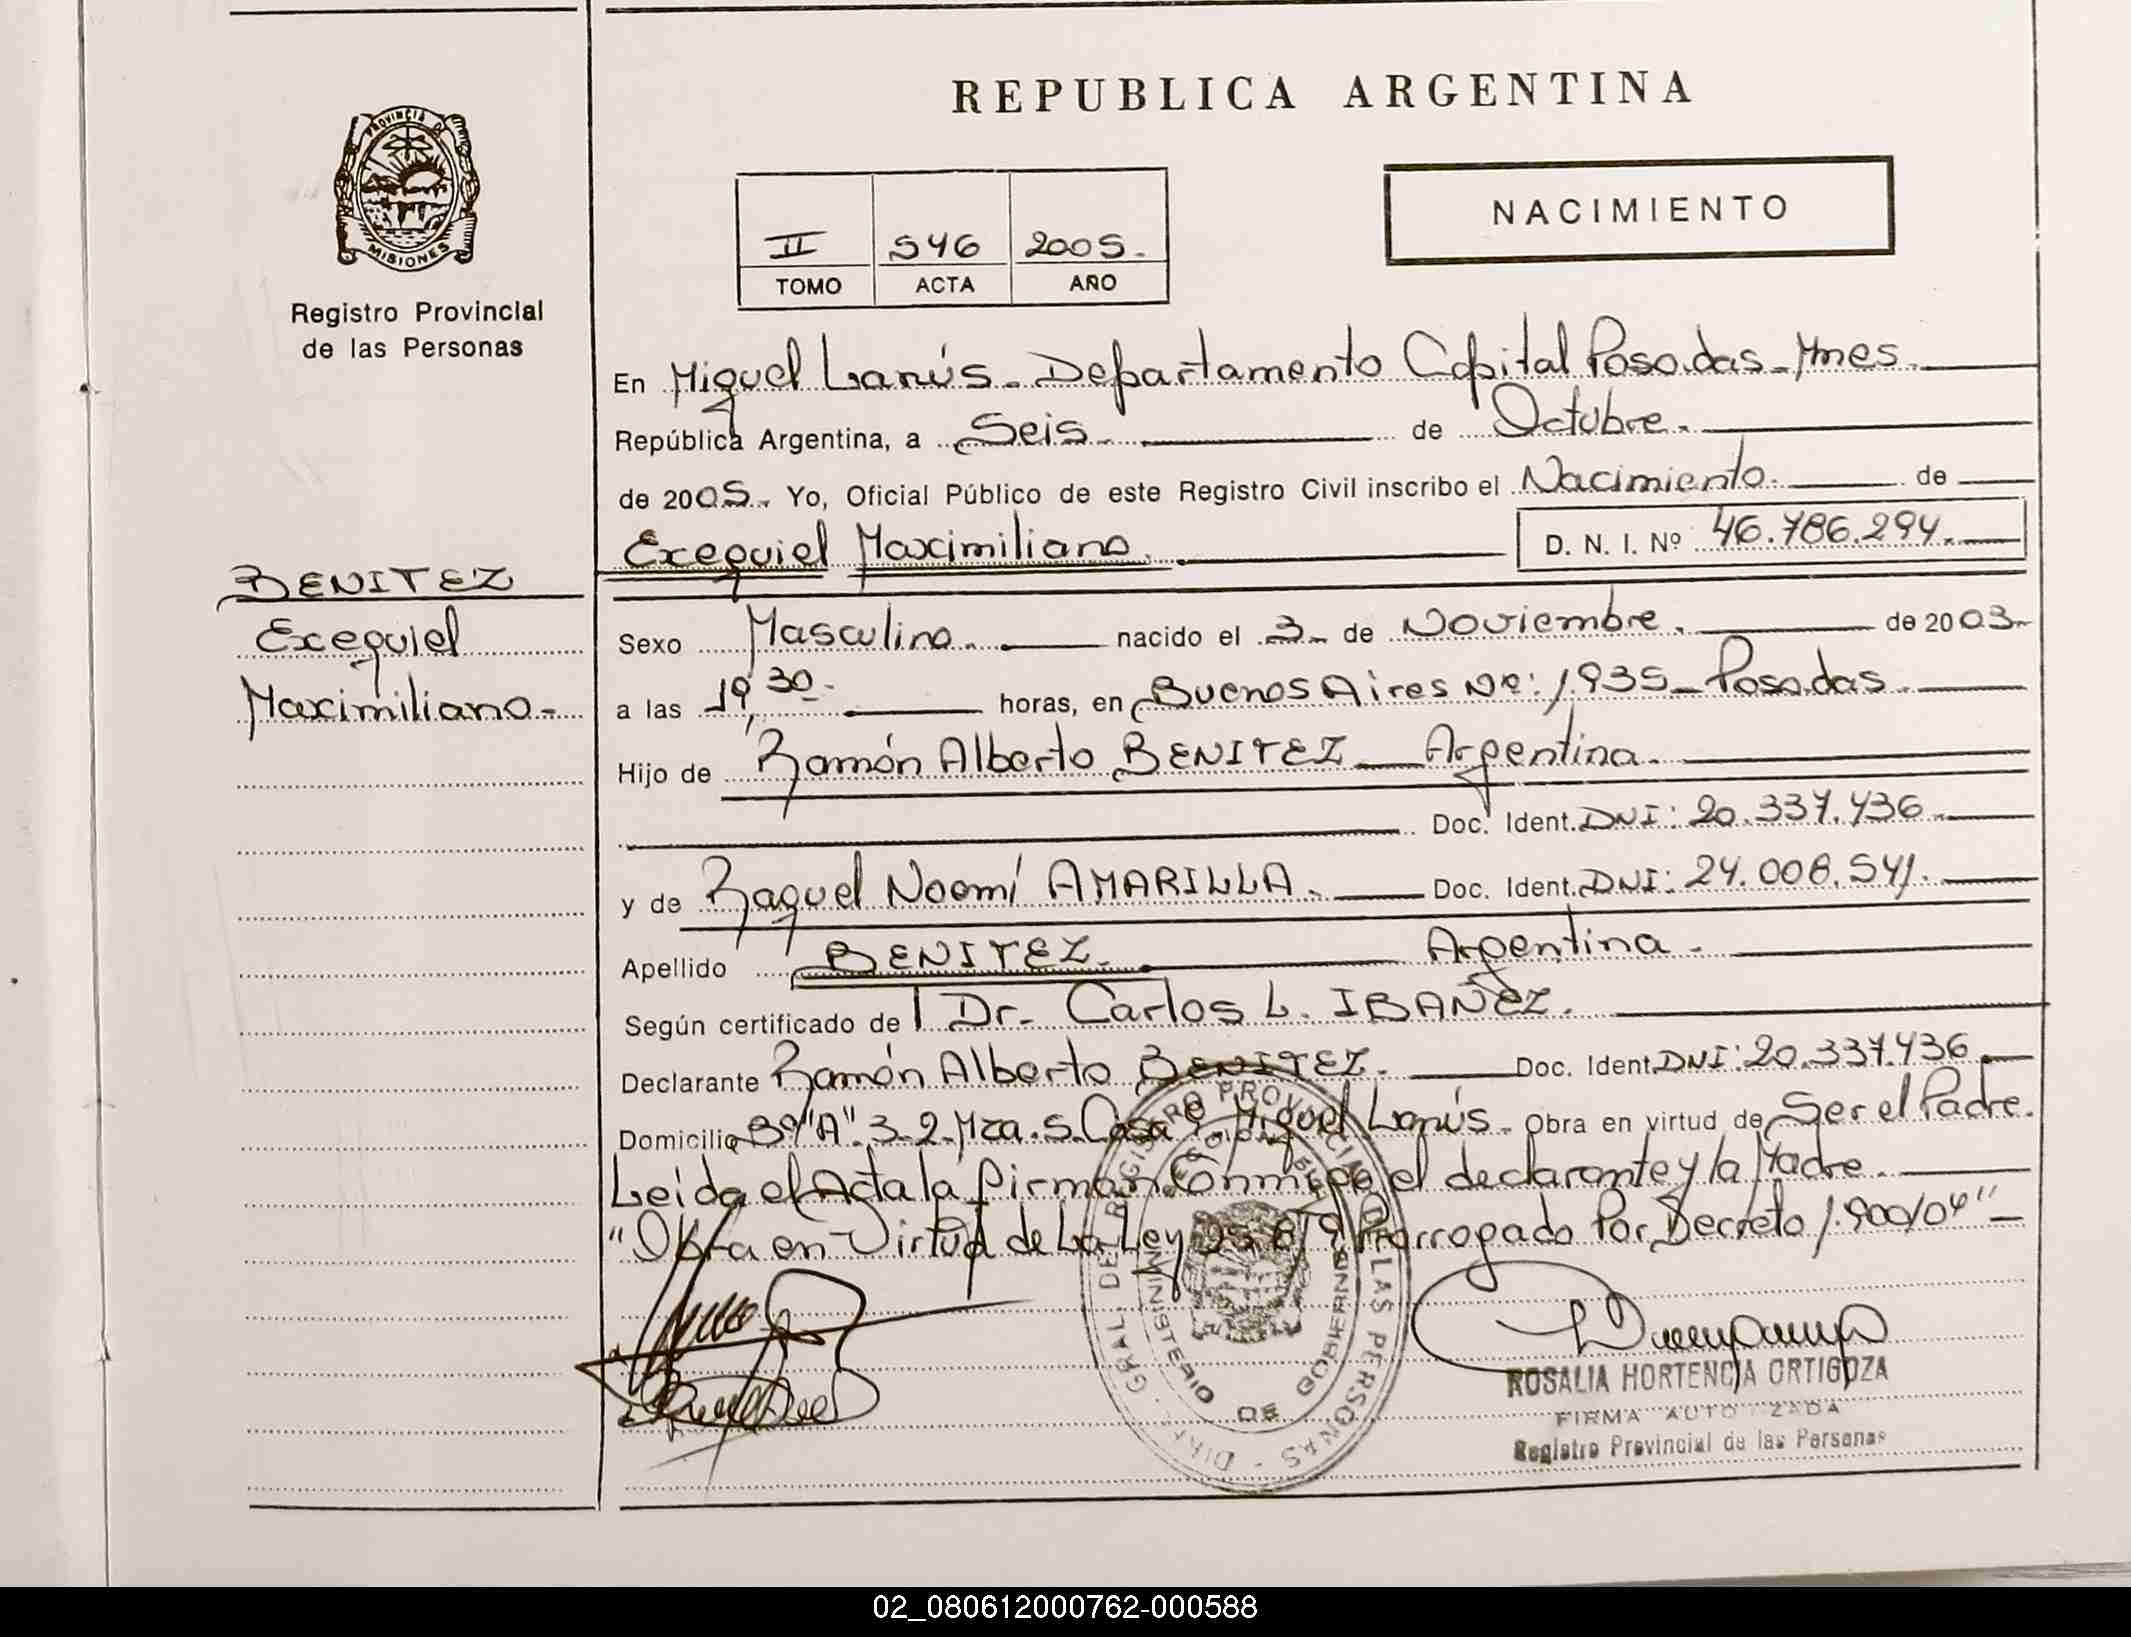 REPUBLICA ARGENTINA
PROVINCIA D
MISIONES
Registro Provincial
de las Personas
NACIMIENTO
II 546 2005.
TOMO ACTA AÑO
En Miguel Lanús - Departamento Capital Posadas - Mnes.
República Argentina, a Seis. de Octubre.
de 2005. Yo, Oficial Público de este Registro Civil inscribo el Nacimiento. de
Exequiel Maximiliano. D. N. I. Nº 46.786.294.
BENITEZ
Exequiel
Maximiliano.-
Sexo Masculino. nacido el 3- de Noviembre. de 2003.
a las 19,30.- horas, en Buenos Aires Nº: 1.935 - Posadas.
Hijo de Ramón Alberto BENITEZ Argentina.
Doc. Ident. DNI: 20.337.436.
y de Raquel Noemí AMARILLA. Doc. Ident. DNI: 24.006.541.
Apellido BENITEZ. Argentina.
Según certificado de Dr. Carlos L. IBAÑEZ.
Declarante Ramón Alberto BENITEZ. Doc. Ident. DNI: 20.337.436
Domicilio Bº "A" 3-2- Mza. S. Casa Miguel Lanús. Obra en virtud de Ser el Padre.
Leida el Acta la firman Conmigo el declarante y la Madre.
"Obra en Virtud de La Ley Prorrogado Por Decreto 1.900/04"-
REGISTRO PROVINCIAL DE LAS PERSONAS - DIR. GRAL. DE
MINISTERIO DE GOBIERNO
ROSALIA HORTENCIA ORTIGOZA
FIRMA AUTORIZADA
Registro Provincial de las Personas
02_080612000762-000588